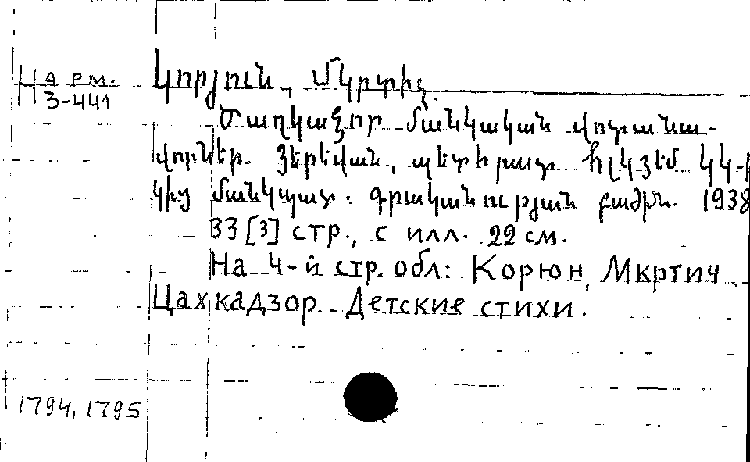 На арм.
3-441
Կորյուն, Մկրտիչ.
Ծաղկաձոր. Մանկական վոտանա-
վորներ. Յերեվան, պետհրատ
կից մանկպատ. գրականության բաժին. 1938
33 [3] стр., с илл. 22 см.
На 4-й стр. обл: Корюн, Мкртич
Цахкадзор. Детские стихи.
1794, 1795